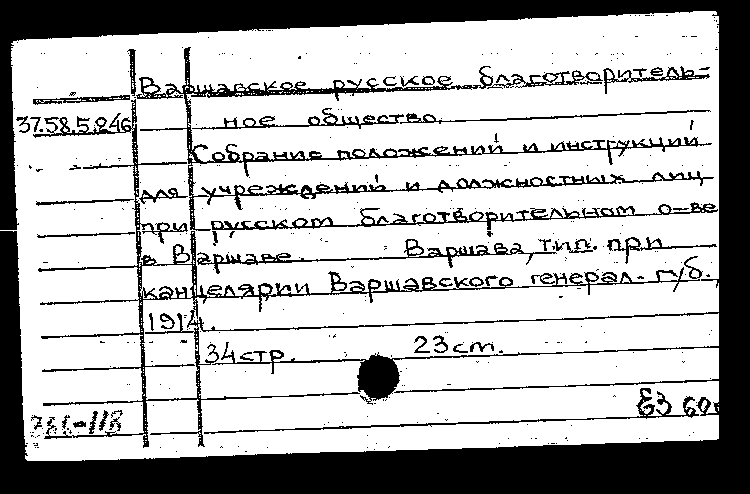 Варшавское русское благотворитель-
37.58.5.246
ное общество.
Собрание положений и инструкций
для учреждений и должностных лиц
при русском благотворительном о-ве
в Варшаве. Варшава, тип. при
канцелярии Варшавского генерал-г/б.,
1914.
34 стр. 23 см.